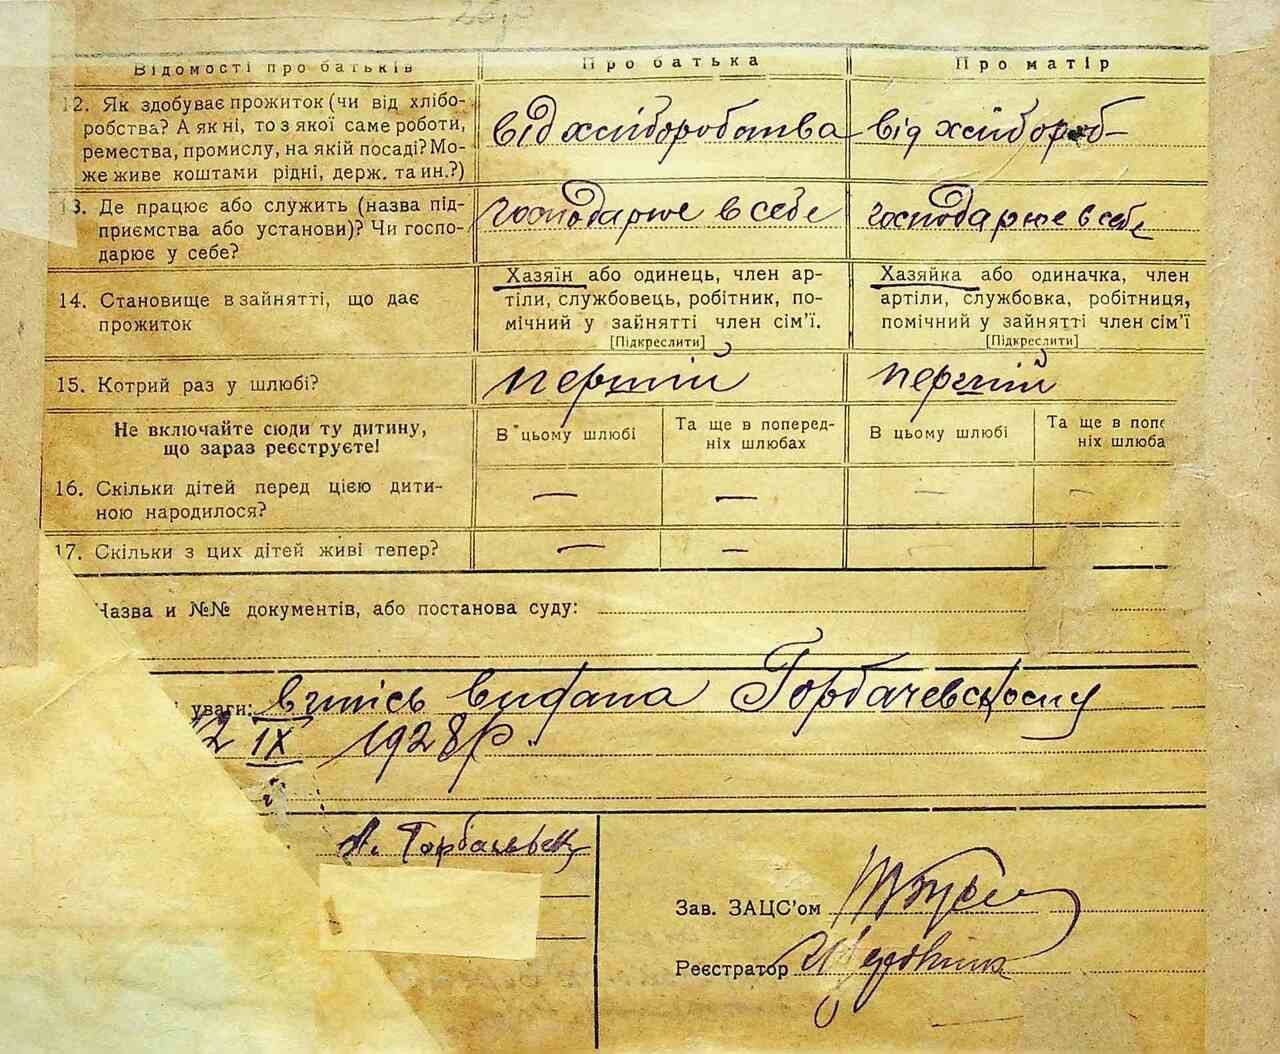 Відомості про батьків Про батька Про матір
12. Як здобуває прожиток (чи від хлібо-
робства? А як ні, то з якої саме роботи,
ремества, промислу, на якій посаді? Мо-
же живе коштами рідні, держ. та ин.?)
від хліборобства
від хлібороб-
13. Де працює або служить (назва під-
приємства або установи)? Чи госпо-
дарює у себе?
господарює в себе
господарює в себе
14. Становище в зайнятті, що дає
прожиток
Хазяїн або одинець, член ар-
тіли, службовець, робітник, по-
мічний у зайнятті член сім'ї.
[Підкреслити]
Хазяйка або одиначка, член
артіли, службовка, робітниця,
помічний у зайнятті член сім'ї
[Підкреслити]
15. Котрий раз у шлюбі?
перший
перший
Не включайте сюди ту дитину,
що зараз реєструєте!
В цьому шлюбі
Та ще в поперед-
ніх шлюбах
В цьому шлюбі
Та ще в попе
ніх шлюба
16. Скільки дітей перед цією дити-
ною народилося?
— — — —
17. Скільки з цих дітей живі тепер?
— — —
Назва и №№ документів, або постанова суду:
уваги: випись видана Горбачевському
12 IX 1928 р.
А. Горбачевськ
Зав. ЗАЦС'ом
Реєстратор